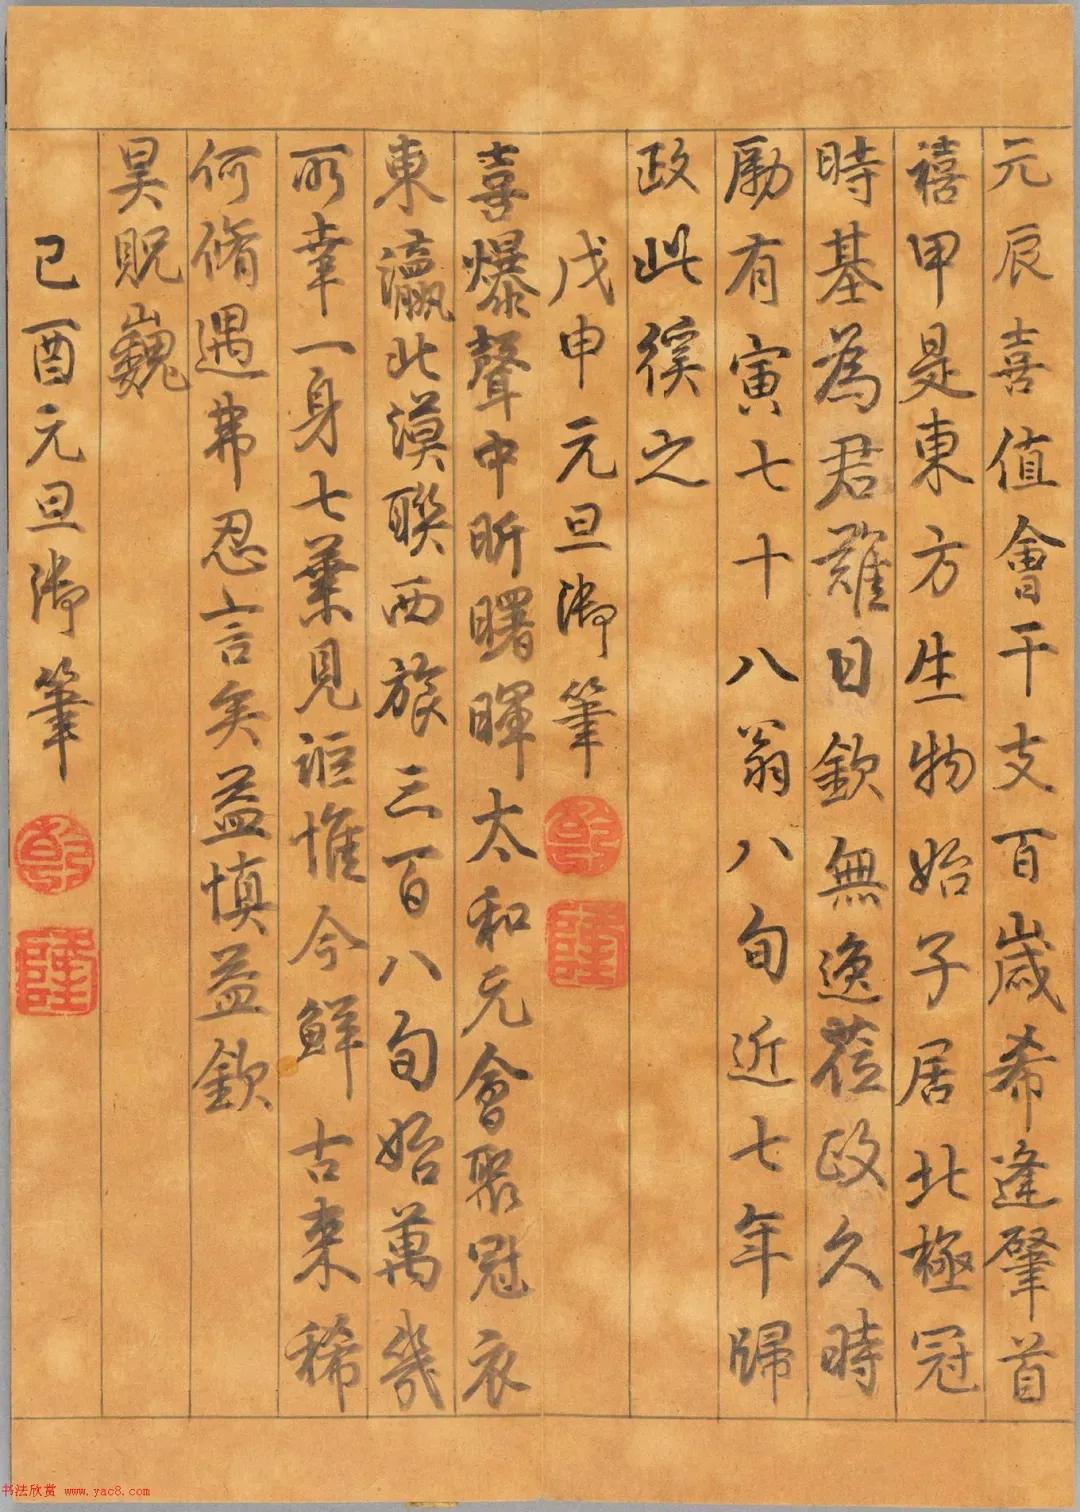 元辰喜值會干支百歲希逢肇首
禧甲是東方生物始子居北極冠
時基為君難日欽無逸莅政久時
勵有寅七十八翁八旬近七年歸
政此徯之
戊申元旦御筆
乾
隆
喜爆聲中昕曙暉太和元會聚冠衣
東瀛北漠聯西旅三百八旬始萬幾
所幸一身七葉見詎惟今鮮古來稀
何脩遇弗忍言矣益慎益欽
昊貺巍
己酉元旦御筆
乾
隆
书法欣赏 www.yac8.com